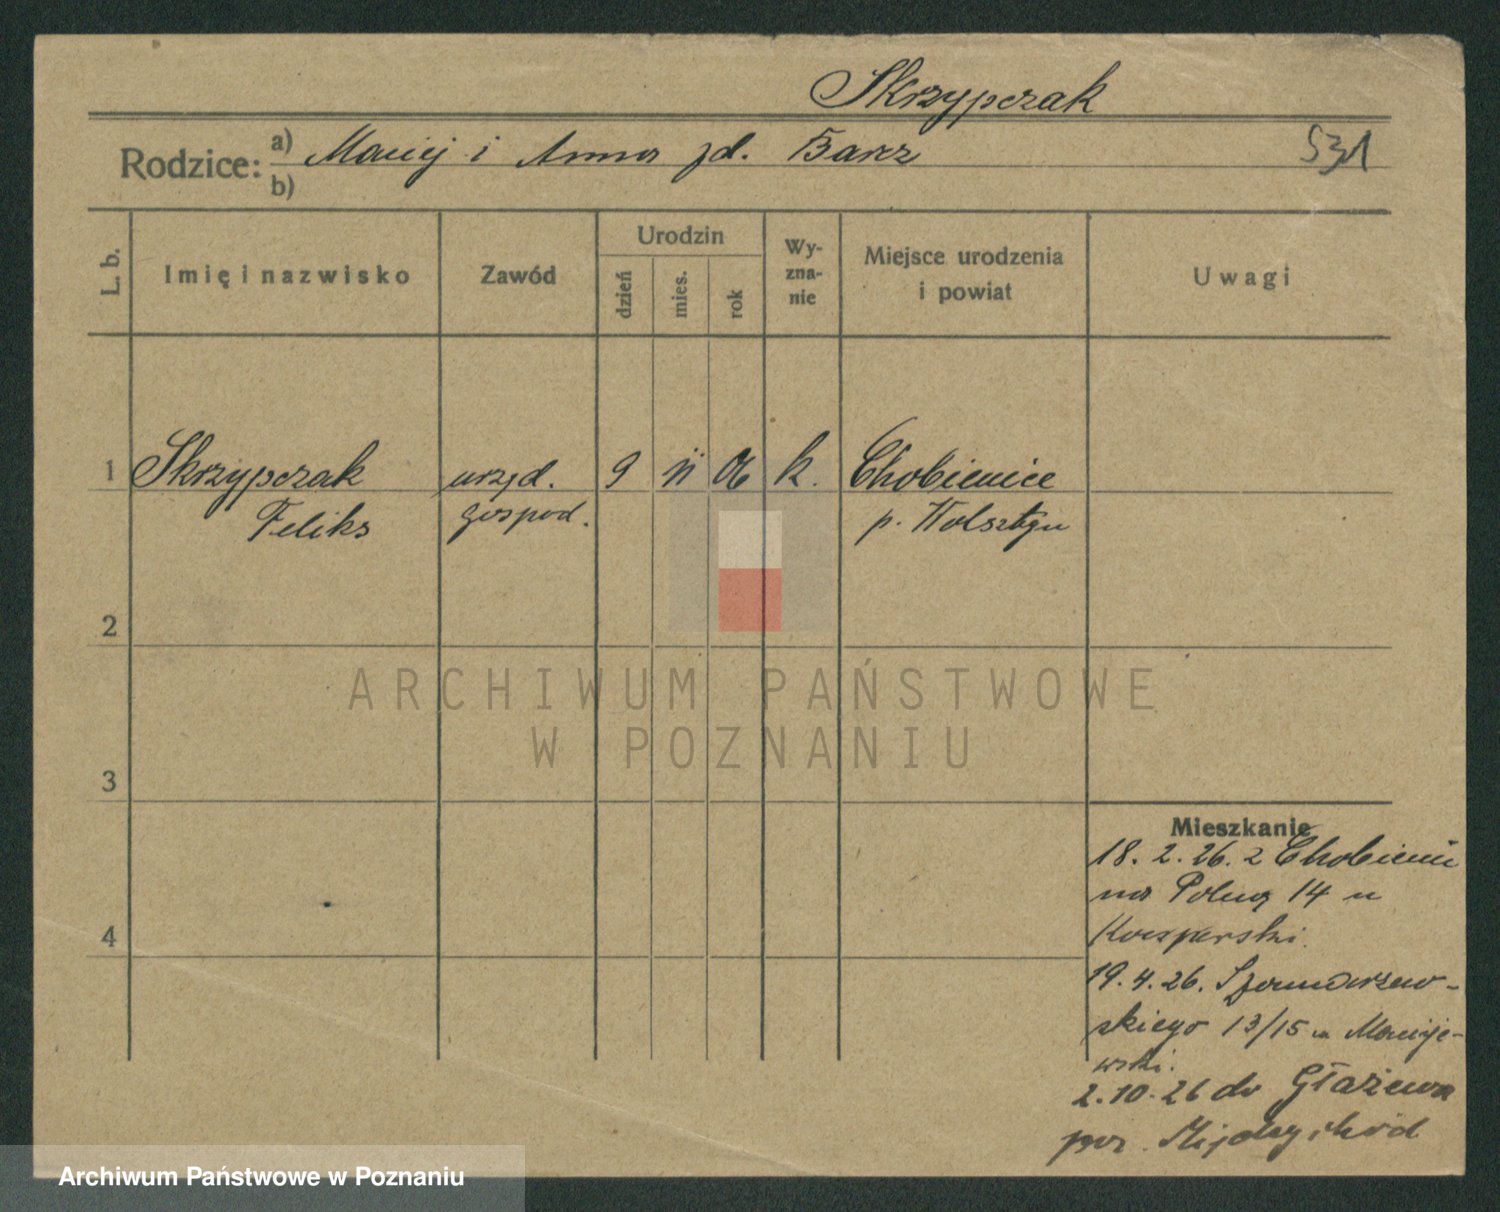 Skrzypczak
Rodzice: a) Maciej i Anna zd. Barcz 531
b)
L. b. Imię i nazwisko Zawód Urodzin dzień mies. rok Wy-zna-nie Miejsce urodzenia i powiat Uwagi
1 Skrzypczak urzęd. 9 11 06 k. Chobienice
Feliks gospod. p. Wolsztyn
2
ARCHIWUM PAŃSTWOWE
W POZNANIU
3
Mieszkanie
18. 2. 26. z Chobienic
na Polną 14 u
Kasperski.
4
19. 4. 26. Szamarzew-
skiego 13/15 u Macieje-
wski.
2. 10. 26 do Głażewa
pow. Międzychód
Archiwum Państwowe w Poznaniu